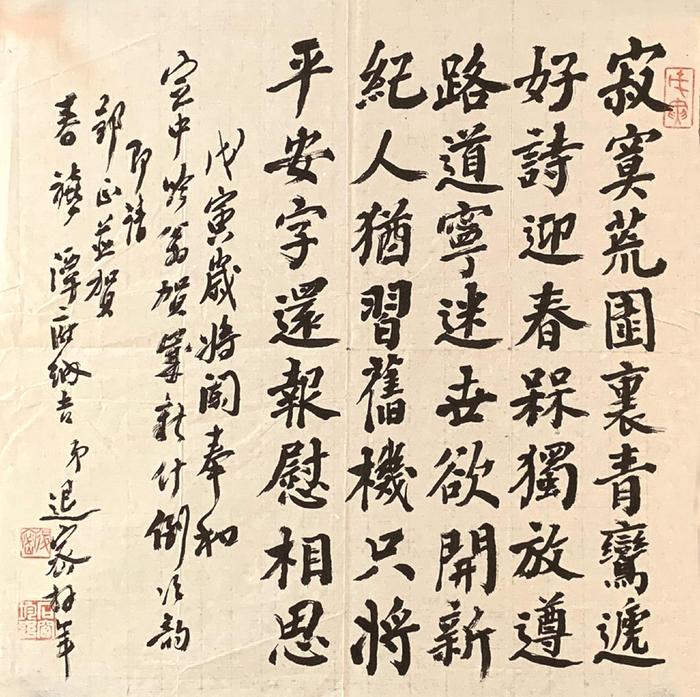 寂寞荒園裏青鸞遞
好詩迎春槑獨放遵
路道寧迷世欲開新
紀人猶習舊機只將
平安字還報慰相思
戊寅歲將闌奉和
中吟翁賀歲新什倒次韵
即請
郢正並賀
春禧潭府納吉弟退密拜年